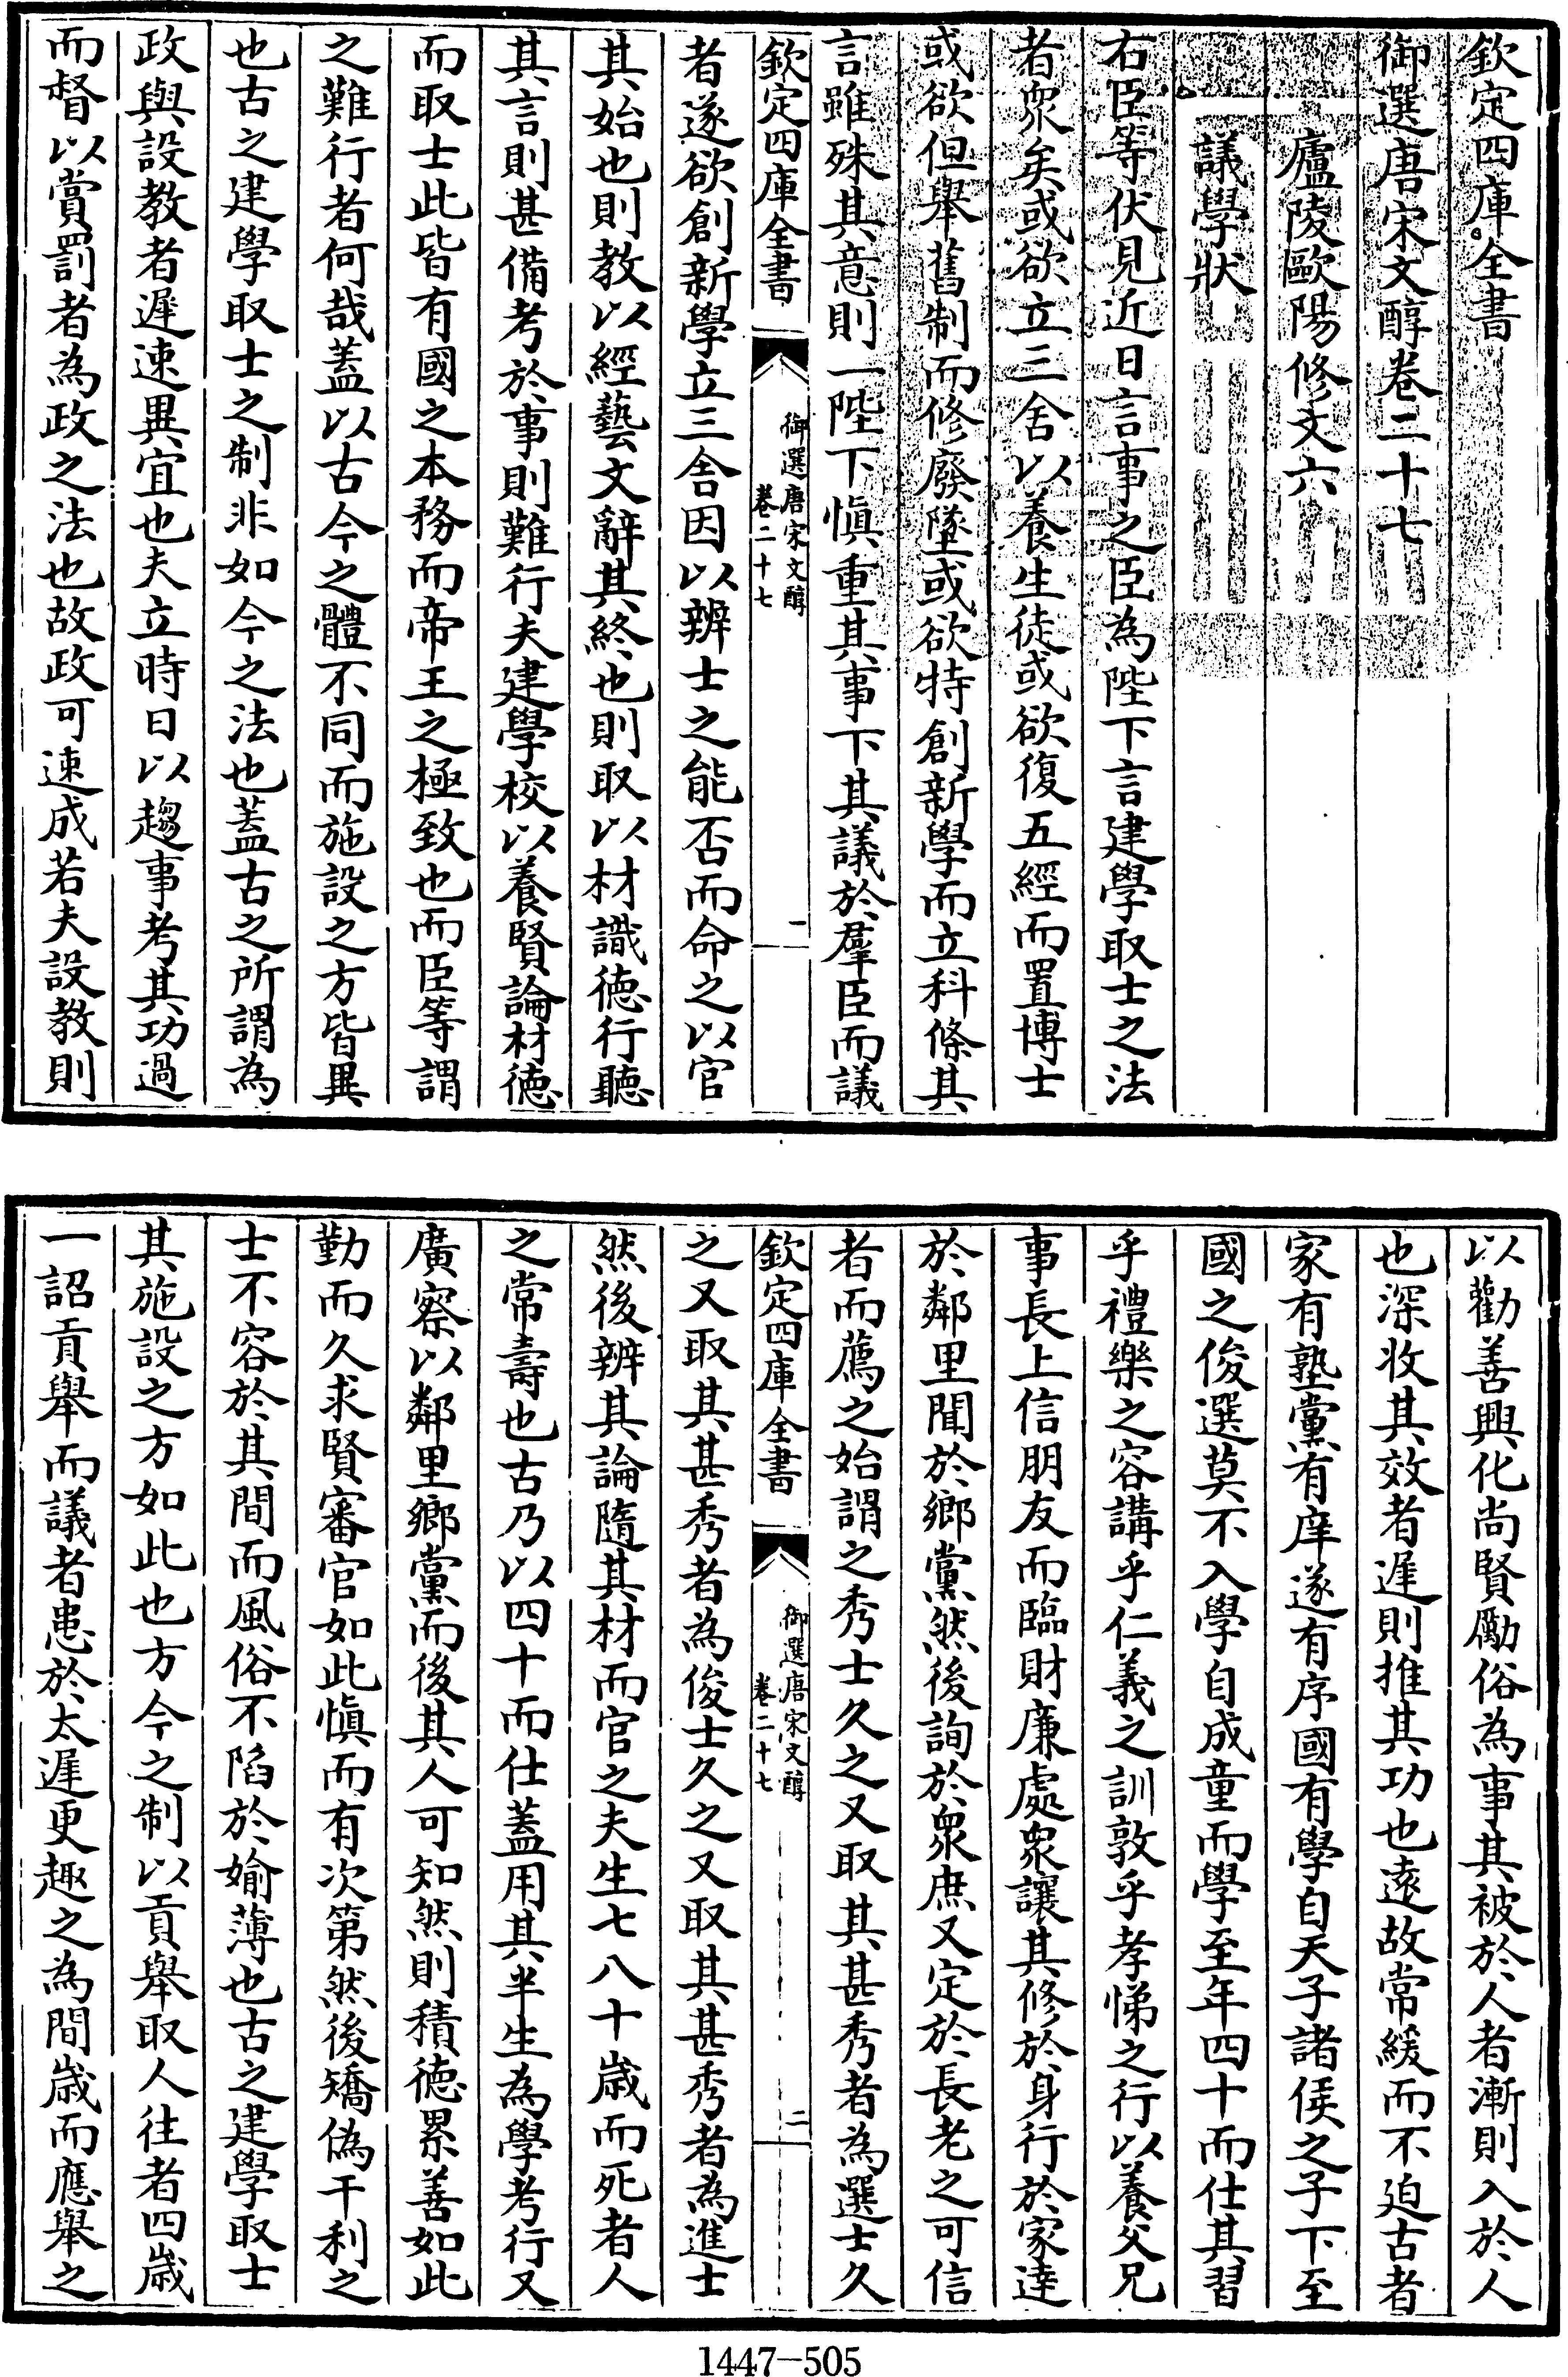 欽定四庫全書
御選唐宋文醇卷二十七
廬陵歐陽修文六
議學狀
右臣等伏見近日言事之臣為陛下言建學取士之法
者衆矣或欲立三舍以養生徒或欲復五經而置博士
或欲但舉舊制而修廢墜或欲特創新學而立科條其
言雖殊其意則一陛下慎重其事下其議於羣臣而議
欽定四庫全書
御選唐宋文醇
卷二十七
一
者遂欲創新學立三舍因以辨士之能否而命之以官
其始也則教以經藝文辭其終也則取以材識徳行聽
其言則甚備考於事則難行夫建學校以養賢論材徳
而取士此皆有國之本務而帝王之極致也而臣等謂
之難行者何哉蓋以古今之體不同而施設之方皆異
也古之建學取士之制非如今之法也蓋古之所謂為
政與設教者遲速異宜也夫立時日以趨事考其功過
而督以賞罰者為政之法也故政可速成若夫設教則
以勸善興化尚賢勵俗為事其被於人者漸則入於人
也深收其效者遲則推其功也逺故常緩而不迫古者
家有塾黨有庠遂有序國有學自天子諸侯之子下至
國之俊選莫不入學自成童而學至年四十而仕其習
乎禮樂之容講乎仁義之訓敦乎孝悌之行以養父兄
事長上信朋友而臨財廉處衆讓其修於身行於家達
於鄰里聞於鄉黨然後詢於衆庶又定於長老之可信
者而薦之始謂之秀士久之又取其甚秀者為選士久
欽定四庫全書
御選唐宋文醇
卷二十七
二
之又取其甚秀者為俊士久之又取其甚秀者為進士
然後辨其論隨其材而官之夫生七八十歳而死者人
之常壽也古乃以四十而仕蓋用其半生為學考行又
廣察以鄰里鄉黨而後其人可知然則積徳累善如此
勤而久求賢審官如此慎而有次第然後矯偽干利之
士不容於其間而風俗不陷於媮薄也古之建學取士
其施設之方如此也方今之制以貢舉取人往者四歳
一詔貢舉而議者患於太遲更趣之為間歳而應舉之
1447-505